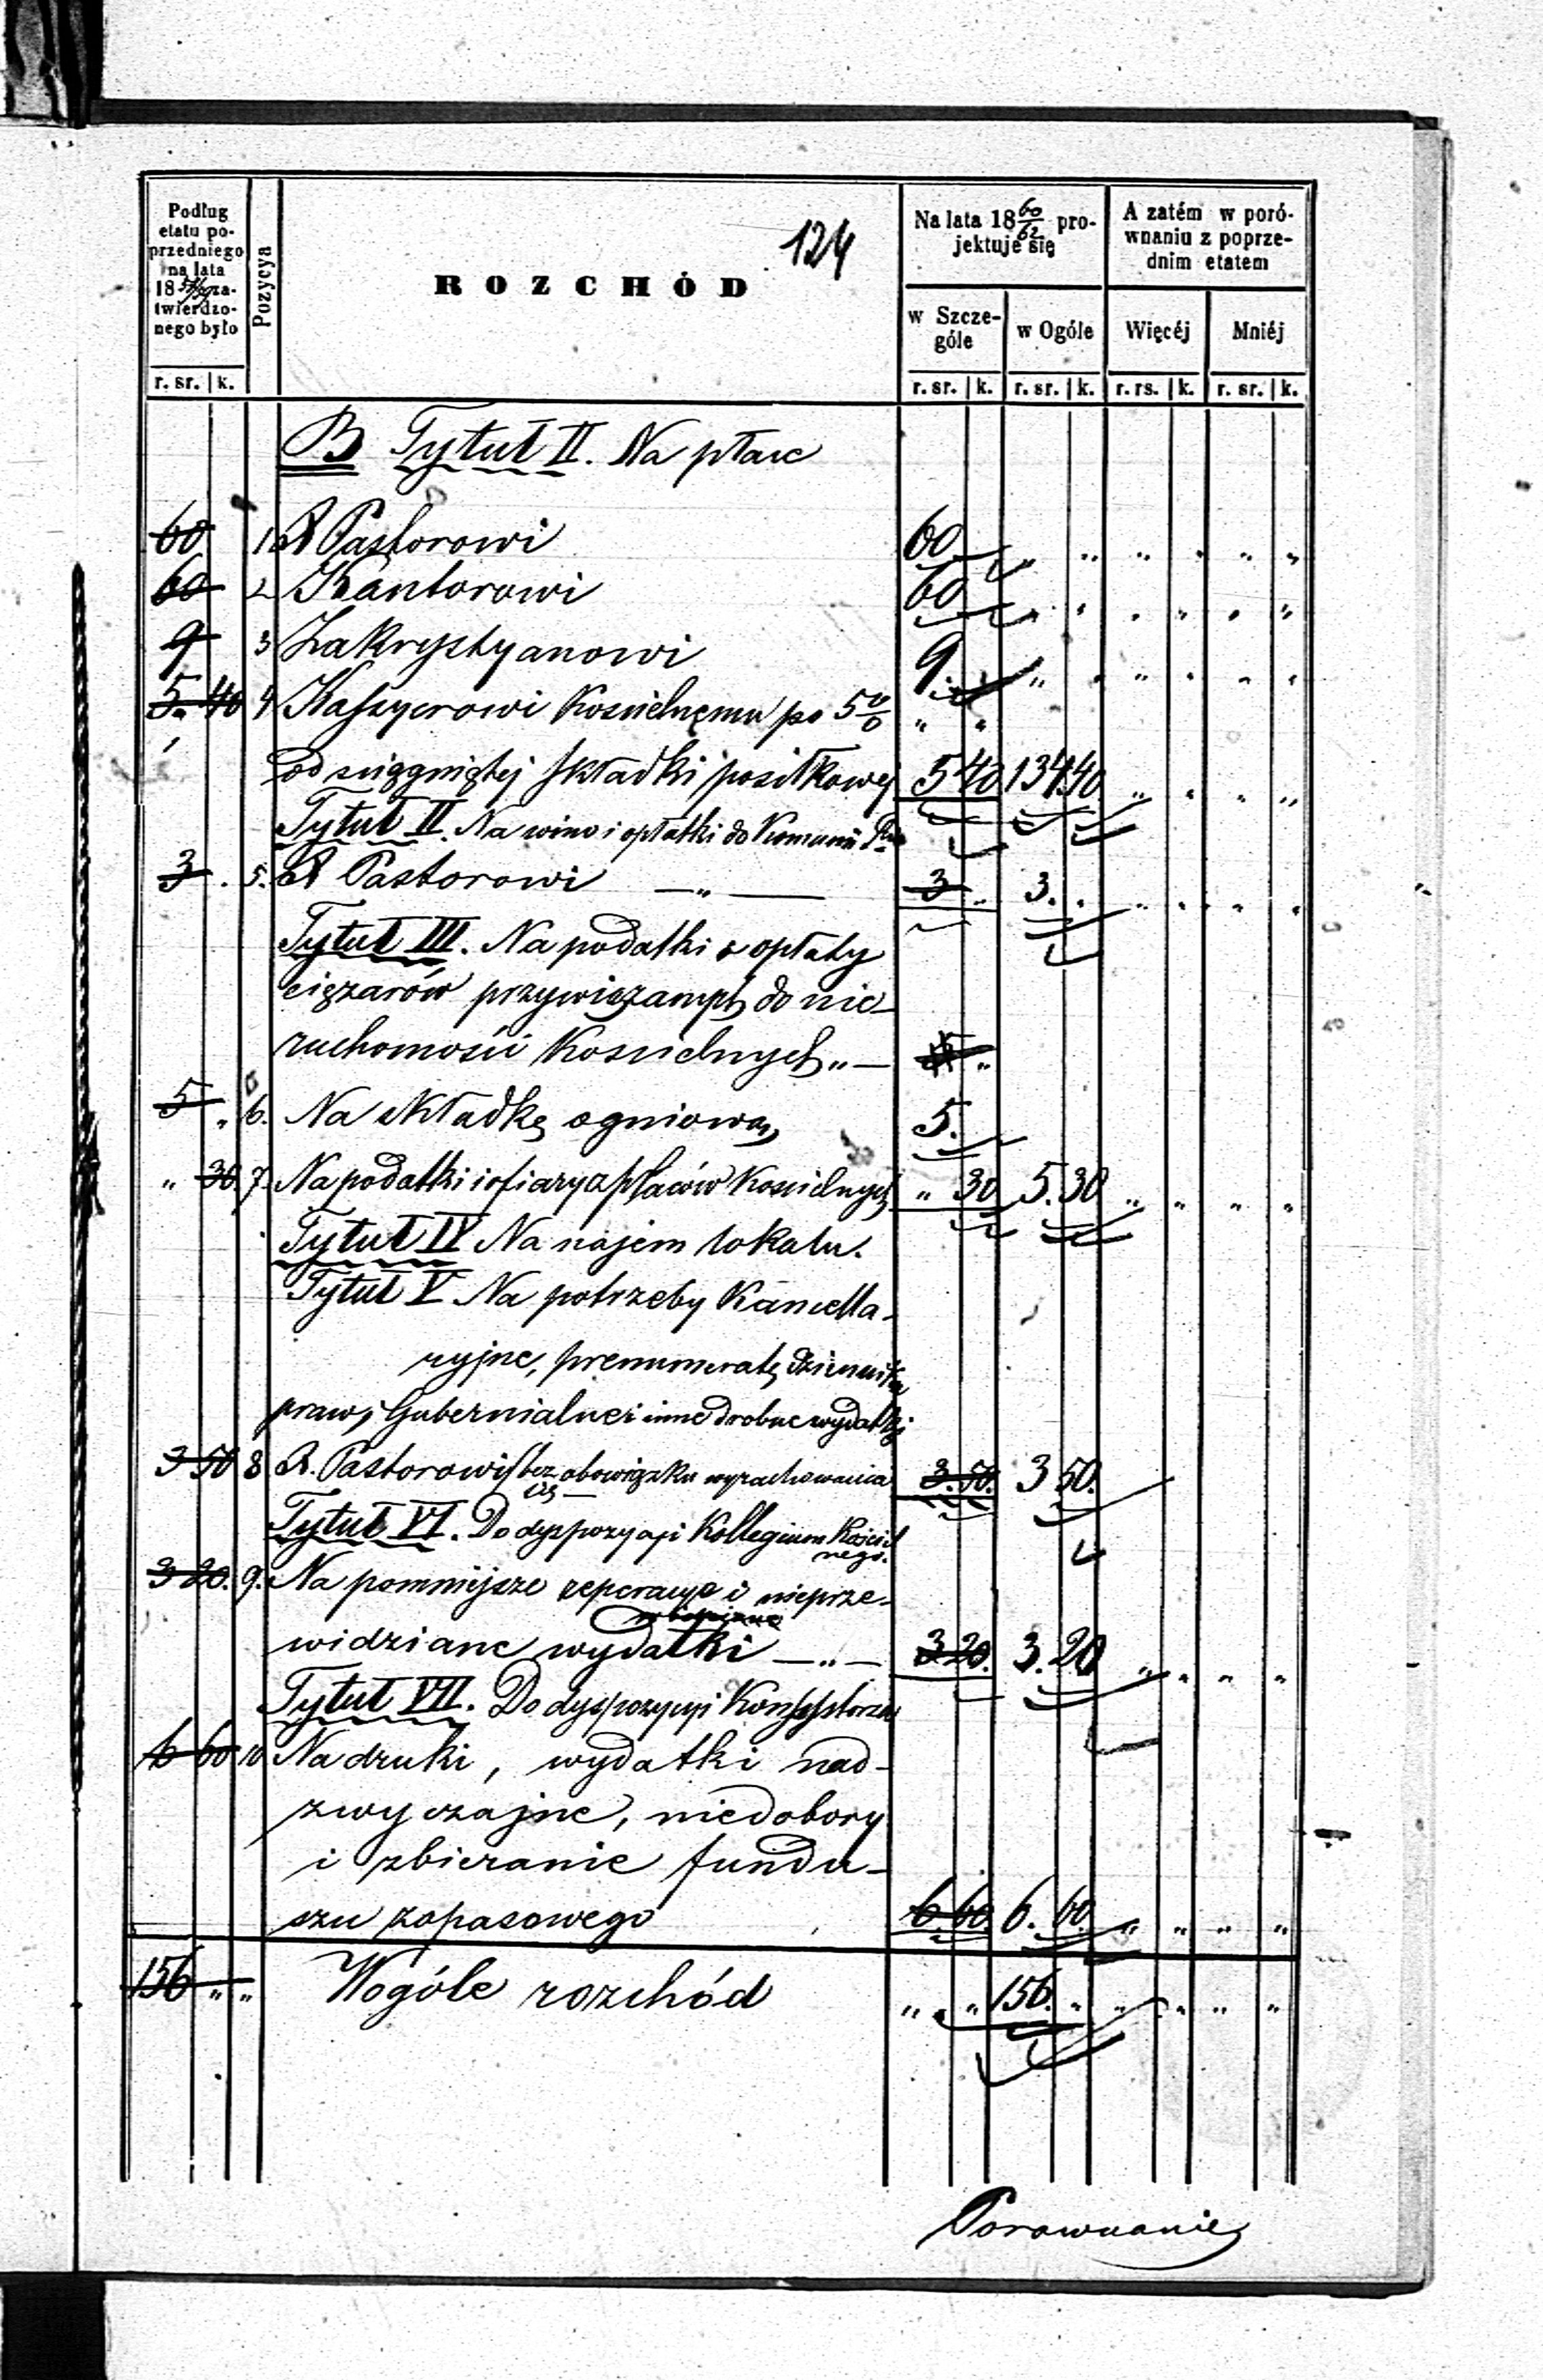 124
Podług etatu poprzedniego na lata 18 za-twierdzo-nego było
Pozycya
ROZCHÓD
Na lata 18 60/62 pro-jektuje się
A zatém w poró-wnaniu z poprze-dnim etatem
w Szcze-góle
w Ogóle
Więcéj
Mniéj
r. sr. k. r. sr. k. r. sr. k. r. rs. k. r. sr. k.
B Tytuł II. Na płace
60 1 X Pastorowi 60 „ „ „ „ „ „
60 2 Kantorowi 60 „ „ „ „ „ „
9 3 Zakrystyanowi 9. „ „ „ „ „ „
5. 40 4 Kassyerowi Kościelnemu po 5 % „ „
od sciągniętej składki posiłkowej 5 40 134 40 „ „ „ „
Tytuł II. Na wino i opłatki do Komunii
3 . 5. X Pastorowi —„— 3 „ 3. . „ „ „ „
Tytuł III. Na podatki i opłaty
ciężarów przywiązanych do nie-
ruchomości Kościelnych „— „
5 „ 6. Na składkę ogniową 5.
„ 30. 7. Na podatki i ofiary z placów Kościelnych „ 30 5. 30 „ „ „ „
Tytuł IV Na najem lokalu.
Tytuł V Na potrzeby Kancella-
ryjne, prenumeratę dziennika
praw, Gubernialne i inne drobne wydatki
3 50 8 X. Pastorowi bez obowiązku wyrachowania 3. 50. 3 50.
się —
Tytuł VI. Do dyspozycji Kollegium Koście
nego.
3 20. 9. Na pomniejsze reperacye i nieprze-
widziane wydatki —„— 3 20. 3. 20 „ „ „ „
Tytuł VII. Do dyspozycyi Konsystorza
6 60 10 Na druki, wydatki nad-
zwyczajne, niedobory
i zbieranie fundu-
szu zapasowego 6 60. 6. 60. „ „ „ „
156 „ „ Wogóle rozchód „ „ „ 156. „ „ „ „ „
Porownanie